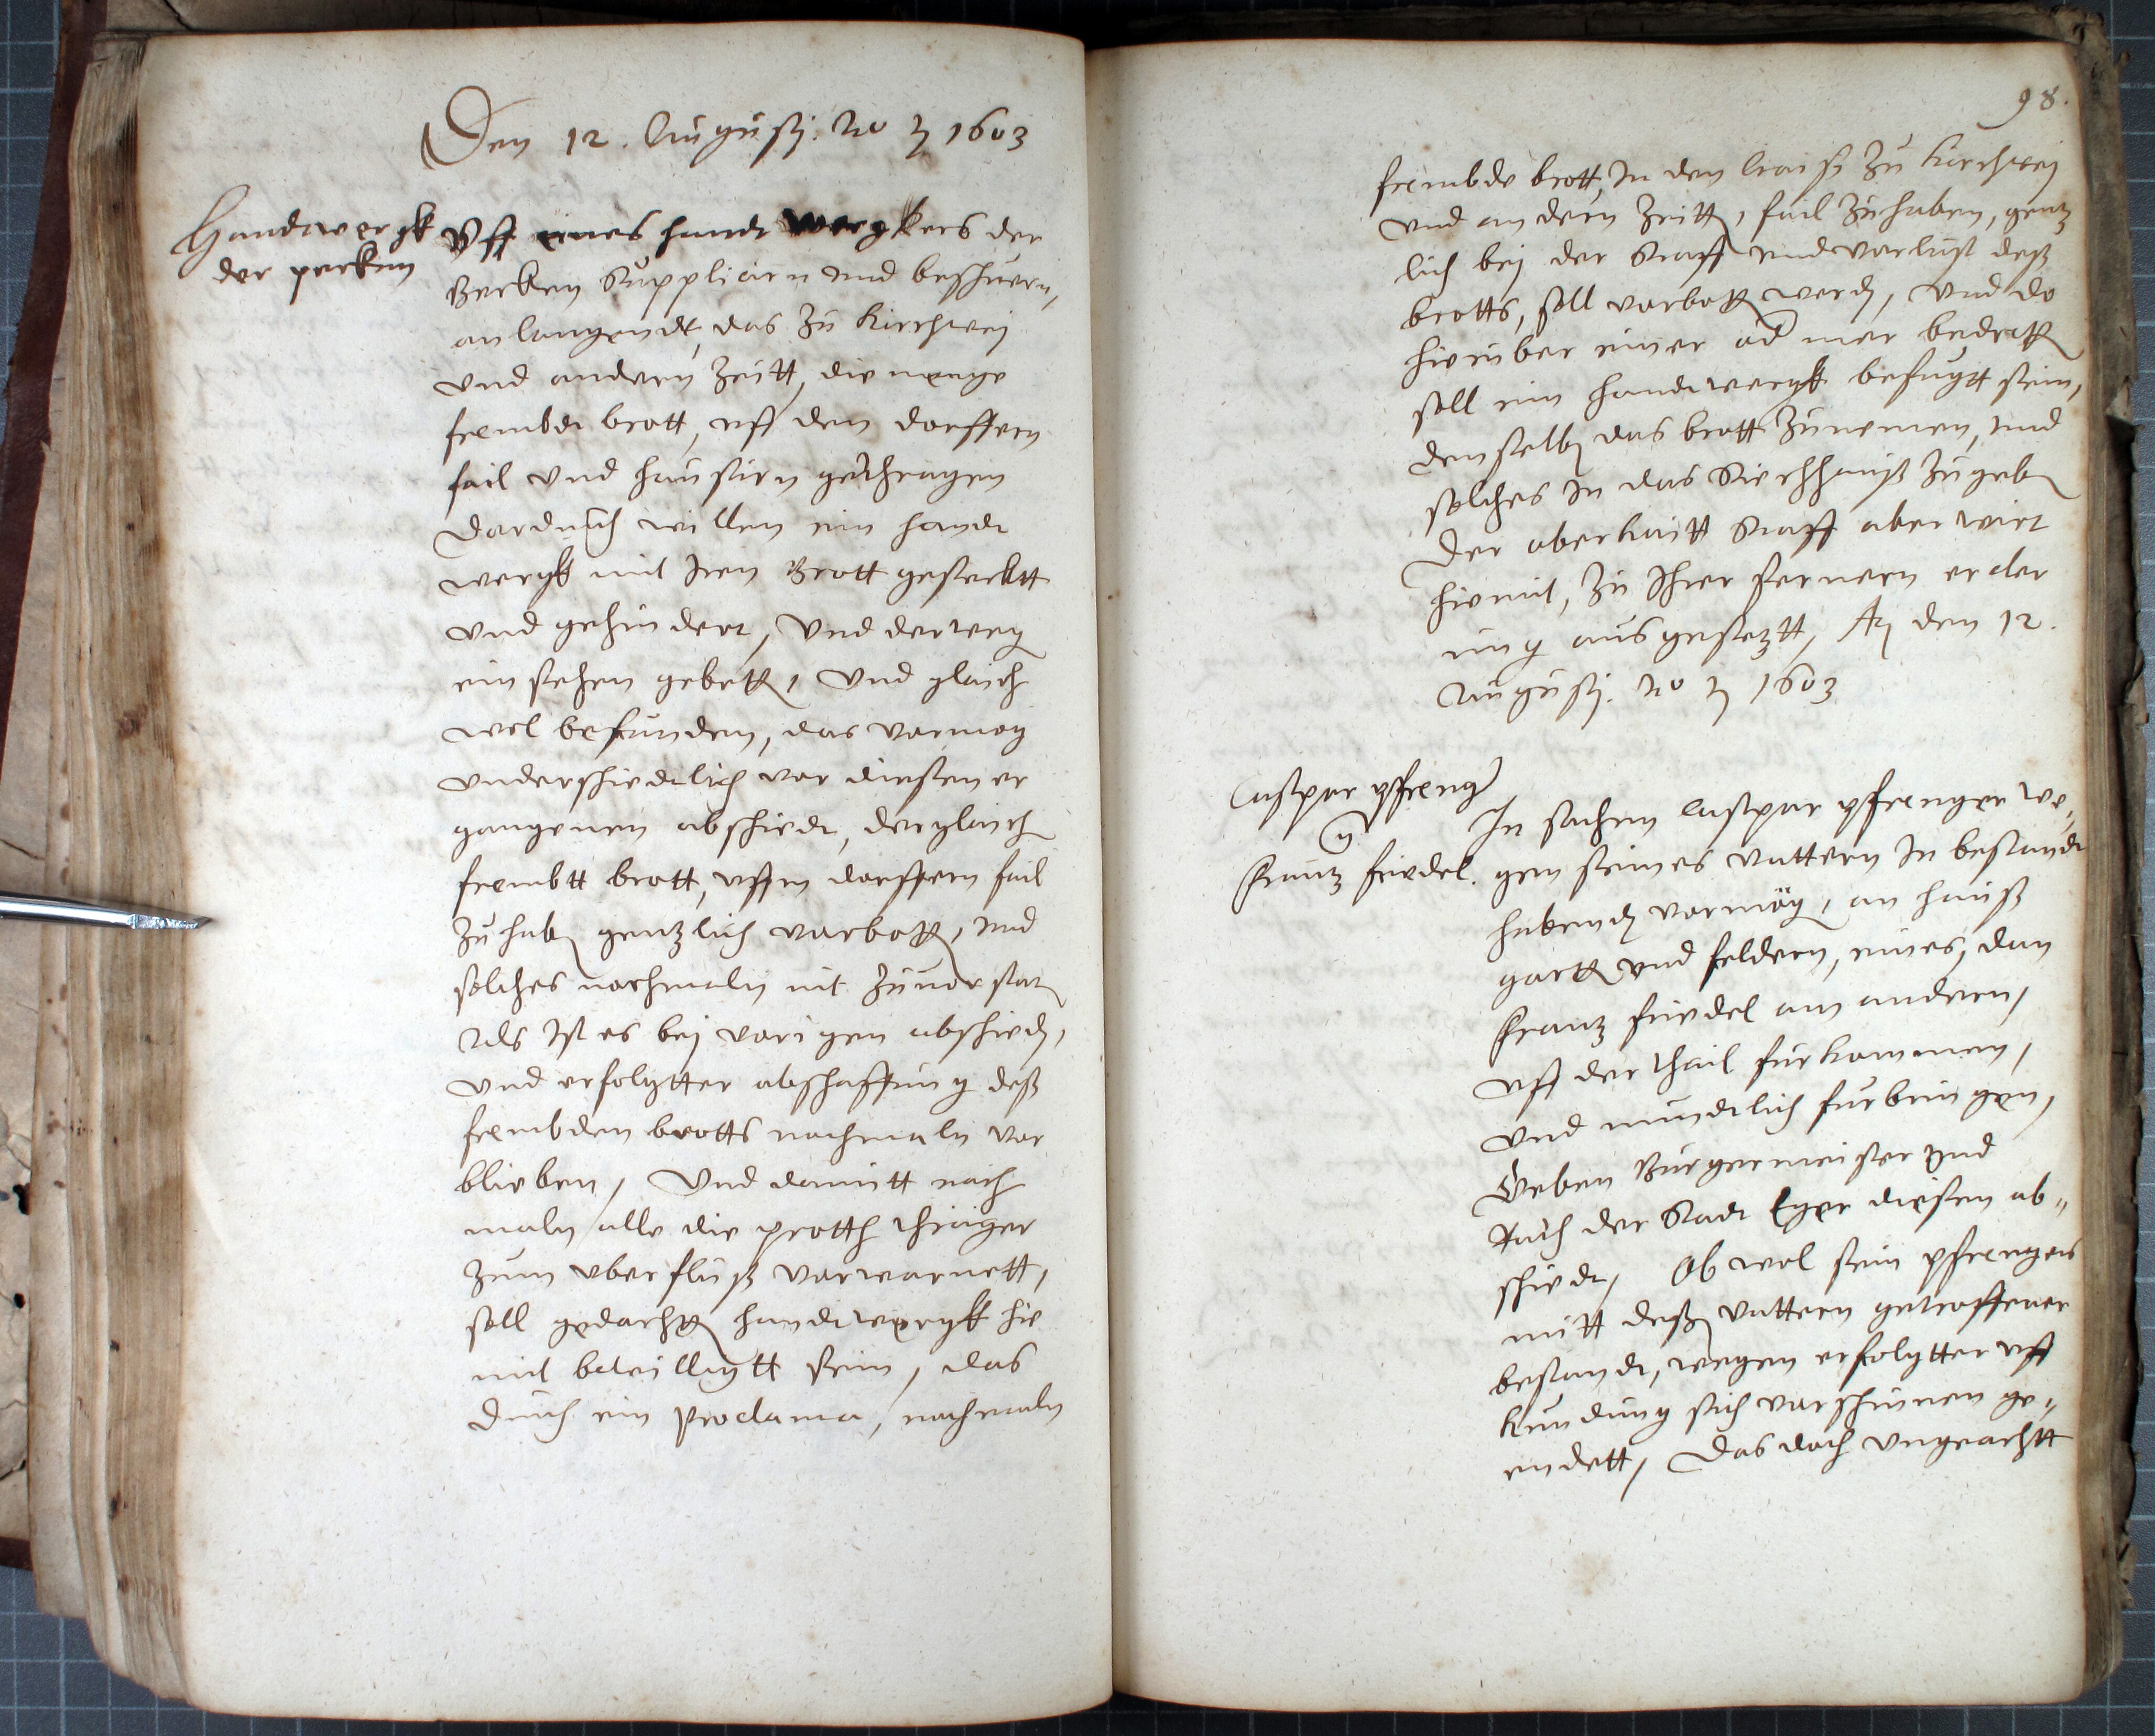 Den 12. Augusti. Ao 1603
Handtwergk
der pecken
Vff eines handtwergkers der
Becken Supplicirn und beschwern,
anlangendt, das zu Kirchwei
und andern Zeitt, die menge
frembdt brott, uff den dorffern
fail und hausirn gethragen
dardurch willen ein handt
wergk mit Iren Brott gesterktt
und gehindert, Und derweg
ein sehen gebett, Und gleich
wol befunden, das vormög
underschiedtlich vor diesen er
gangenen abschiedt, dergleich
frembtt brott, uffm dorffern fail
zuhab gentzlich verbott, und
solches nochmaln nit zuvorstat
Als Ist es bei vorigen abschied,
und erfolgtter abschaffung deß
frembden brotts nochmaln vor
blieben, Und damitt noch
maln alle die protth thräger
zum uberfluß verwarnett,
soll gedachtt handtwergk hie
mit bewilligtt sein, das
durch ein Proclama, nochmaln
98.
frembde brott, In den Craiß zu Kirchwei
und andern Zeitt, fail zuhaben, gentz
lich bei der Straff und verlust deß
brotts, soll verbott werd, und do
hieruber einer od mer bedrett
soll ein handtwergk befugtt sein,
denselb das brott zunemen, und
solches In das Siechhauß zugeb
Der aberkeitt Straff aber wirt
hiemit, zu Ihrer fernern erder
ung ausgesetztt, Ag den 12.
Augusti. Ao 1603
Caspar pfreng
Frantz friedel.
In sachen Caspar pfrenger we„
gen seines Vattern In bestandt
habend vormög, an hauß
gartt und feldern, eines, dan
Frantz friedel am andern,
uff der thail furkommen,
und mundtlich furbringen,
Geben Burgermeister und
Rath der Stadt Eger diesen ab„
schiedt, Ob wol sein pfrengers
mitt deß Vattern getroffener
bestandt, wegen erfolgtter uff
kundung sich verschinen ge„
endett, Das doch ungeachtt